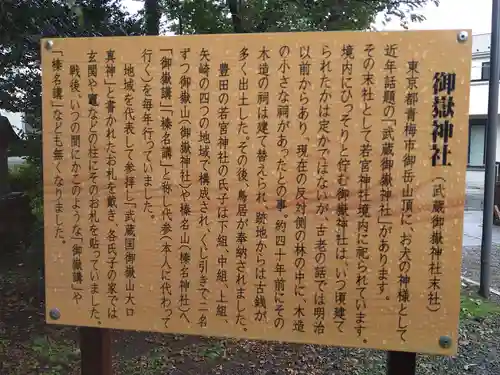 御嶽神社（武蔵御嶽神社末社）
東京都青梅市御岳山頂に、お犬の神様として
近年話題の「武蔵御嶽神社」があります。
その末社として若宮神社境内に祀られています。
境内にひっそりと佇む御嶽神社は、いつ頃建て
られたかは定かではないが、古老の話では明治
以前からあり、現在の反対側の林の中に、木造
の小さな祠があったとの事。約四十年前にその
木造の祠は建て替えられ、跡地からは古銭が
多く出土した。その後、鳥居が奉納されました。
豊田の若宮神社の氏子は下組、中組、上組、
矢崎の四つの地域で構成され、くじ引きで二名
ずつ御嶽山（御嶽神社）や榛名山（榛名神社）へ
「御嶽講」「榛名講」と称し代参（本人に代わって
行く）を毎年行っていました。
地域を代表して参拝し「武蔵国御嶽山大口
真神」と書かれたお札を戴き、各氏子の家では
玄関や竈などの柱にそのお札を貼っていました。
戦後、いつの間にかこのような「御嶽講」や
「榛名講」なども無くなりました。